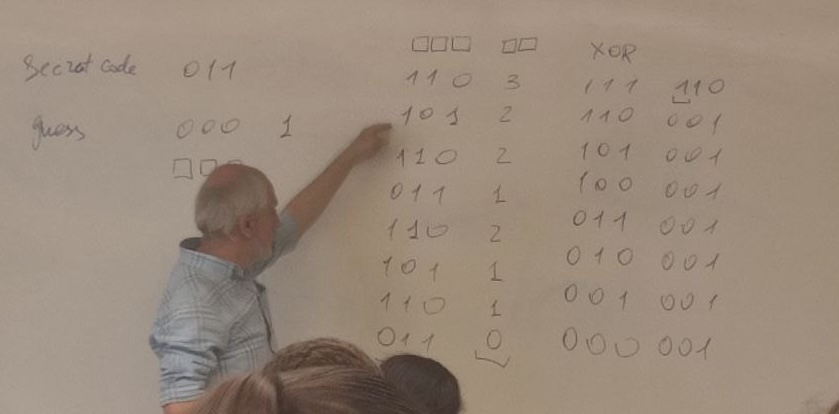 Secret code 011
guess 000 1
□□□ □□ XOR
110 3 111 110
101 2 110 001
110 2 101 001
011 1 100 001
110 2 011 001
101 1 010 001
110 1 001 001
011 0 000 001